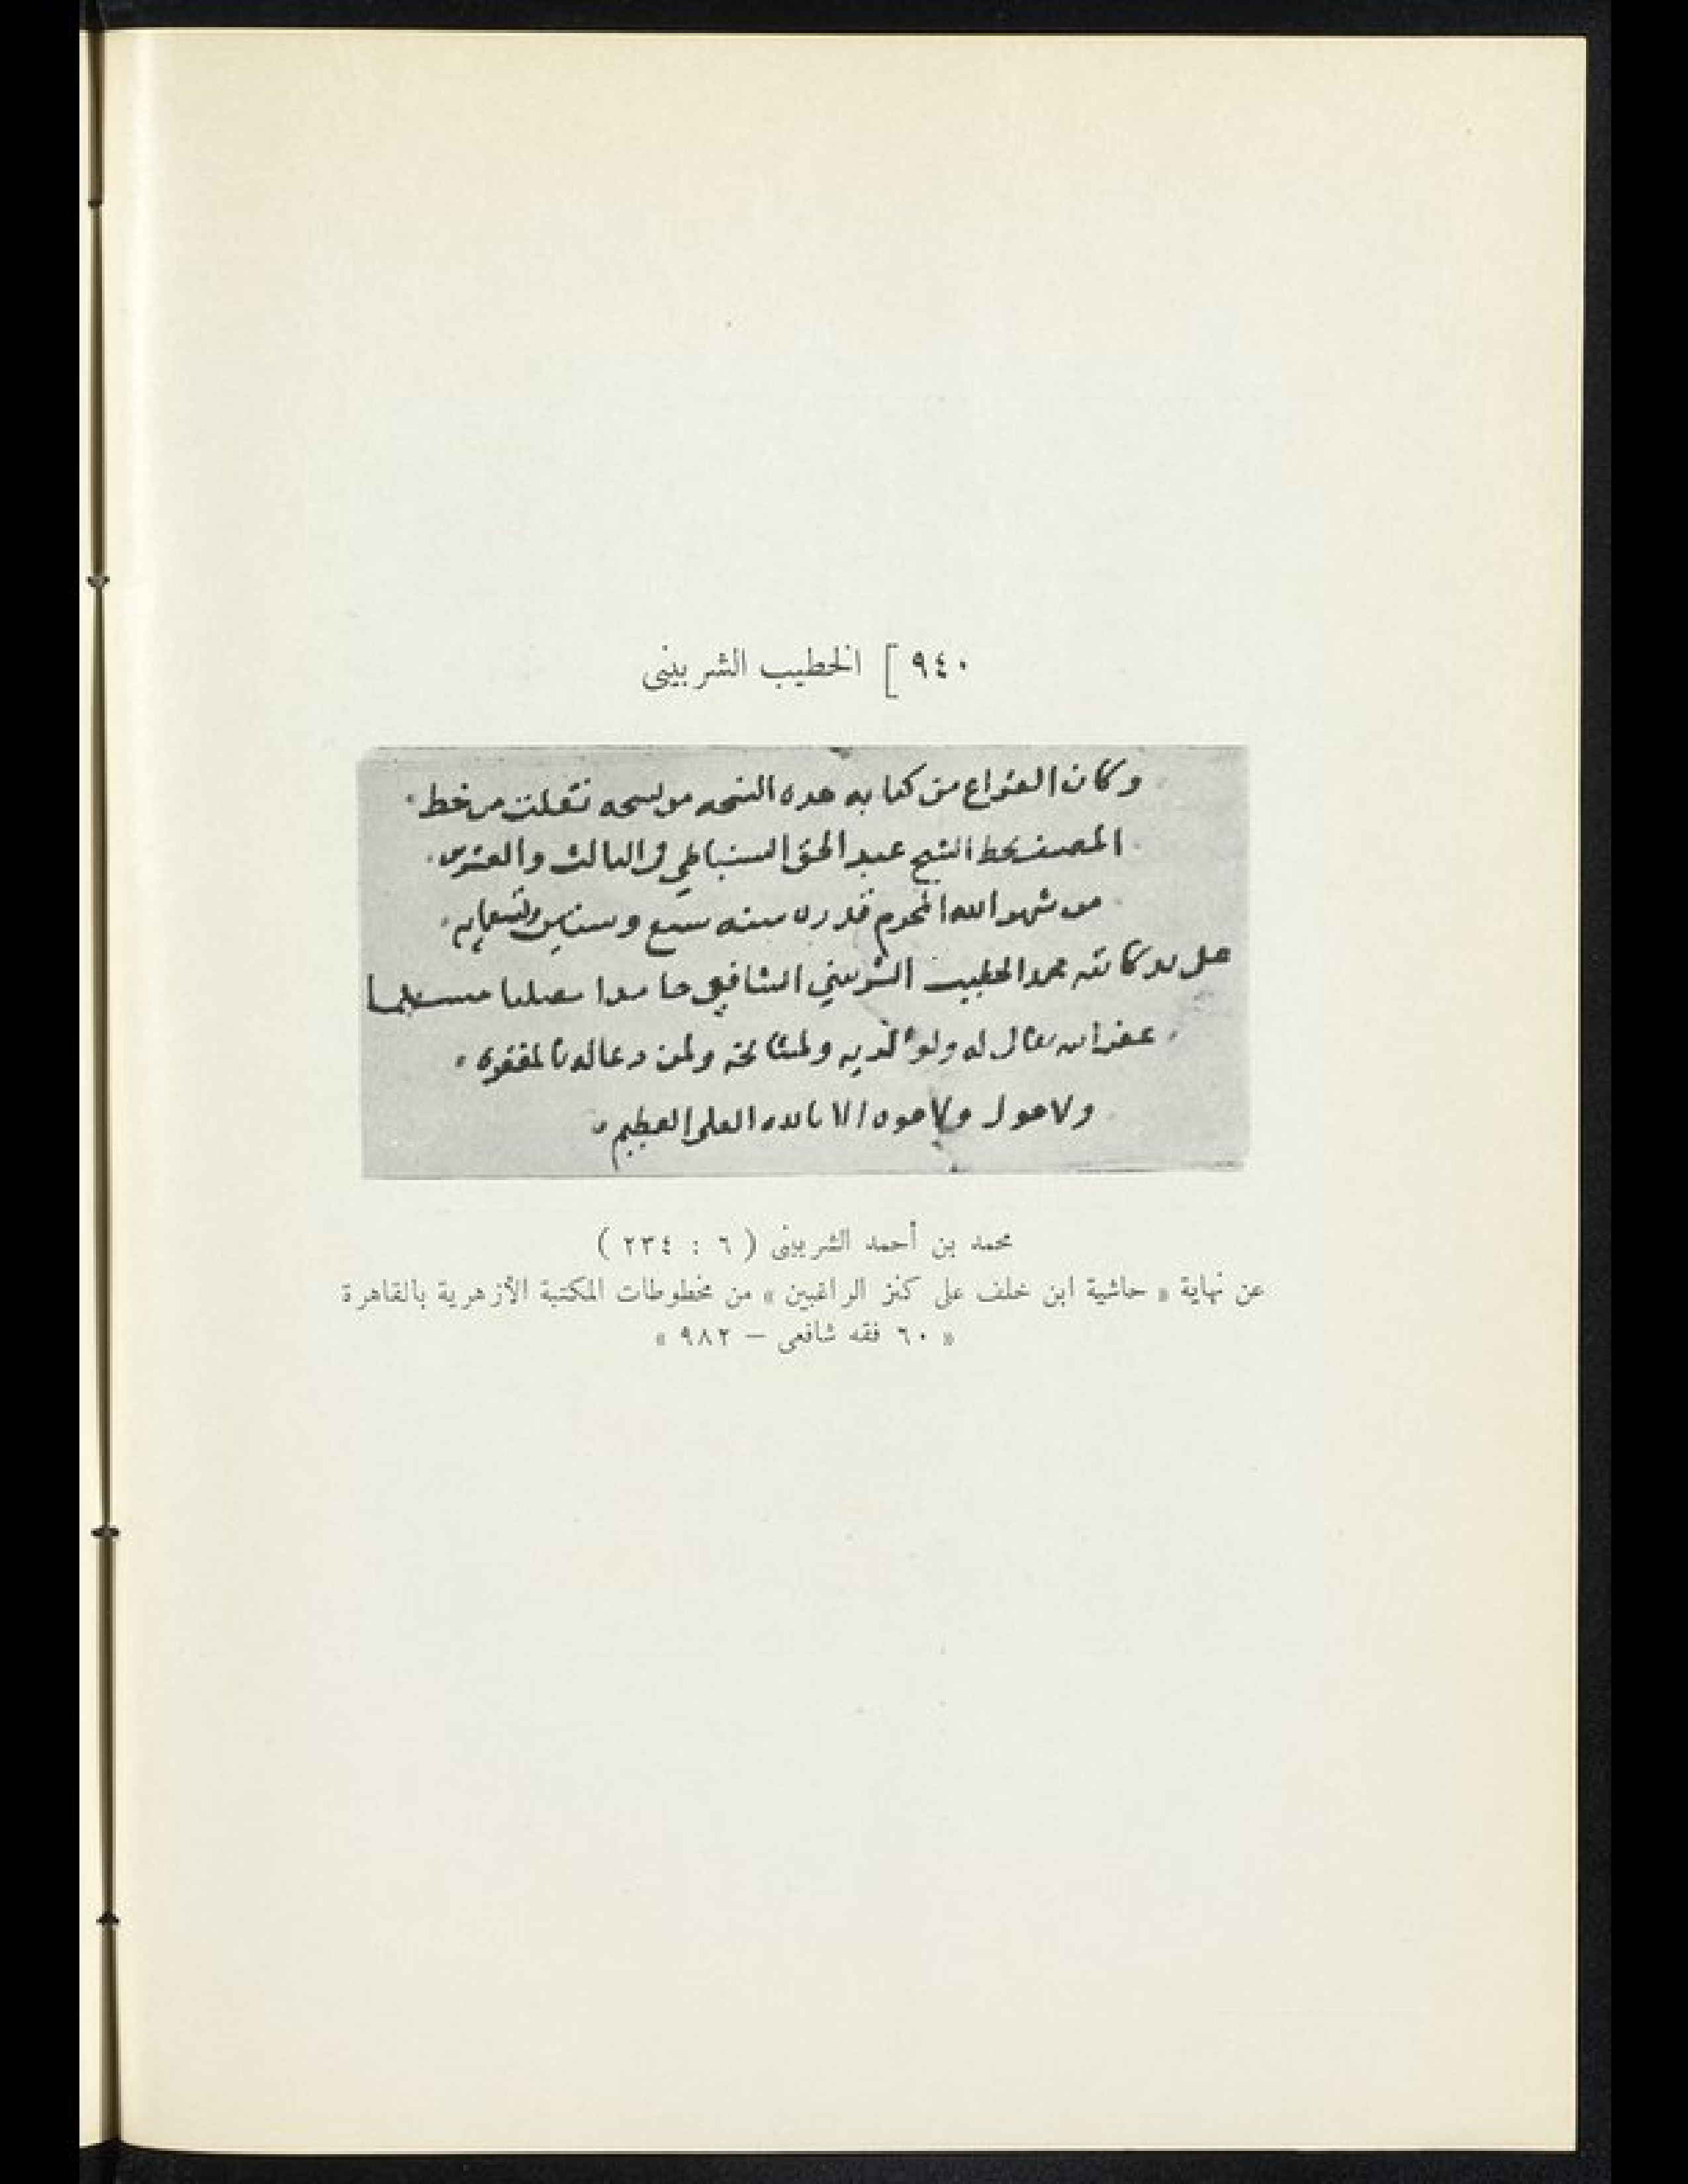 ٩٤٠ [ الخطيب الشربينى
وكان الفراغ من كتابه هده النسخه من نسخه نقلت من خط
المصنف بخط الشيخ عبد الحق السنباطي في الثالث والعشرين
من شهر الله المحرم سنه سبع وستين وتسعمايه
على يد كاتبه محمد الخطيب الشربيني الشافعي حامدا مصليا مسلما
غفر الله تعالى له ولوالديه ولمشائخه ولمن دعا لهم بالمغفره
ولا حول ولا قوه الا بالله العلى العظيم
محمد بن أحمد الشربينى ( ٦ : ٢٣٤ )
عن نهاية « حاشية ابن خلف على كنز الراغبين » من مخطوطات المكتبة الأزهرية بالقاهرة
« ٦٠ فقه شافعى – ٩٨٢ »